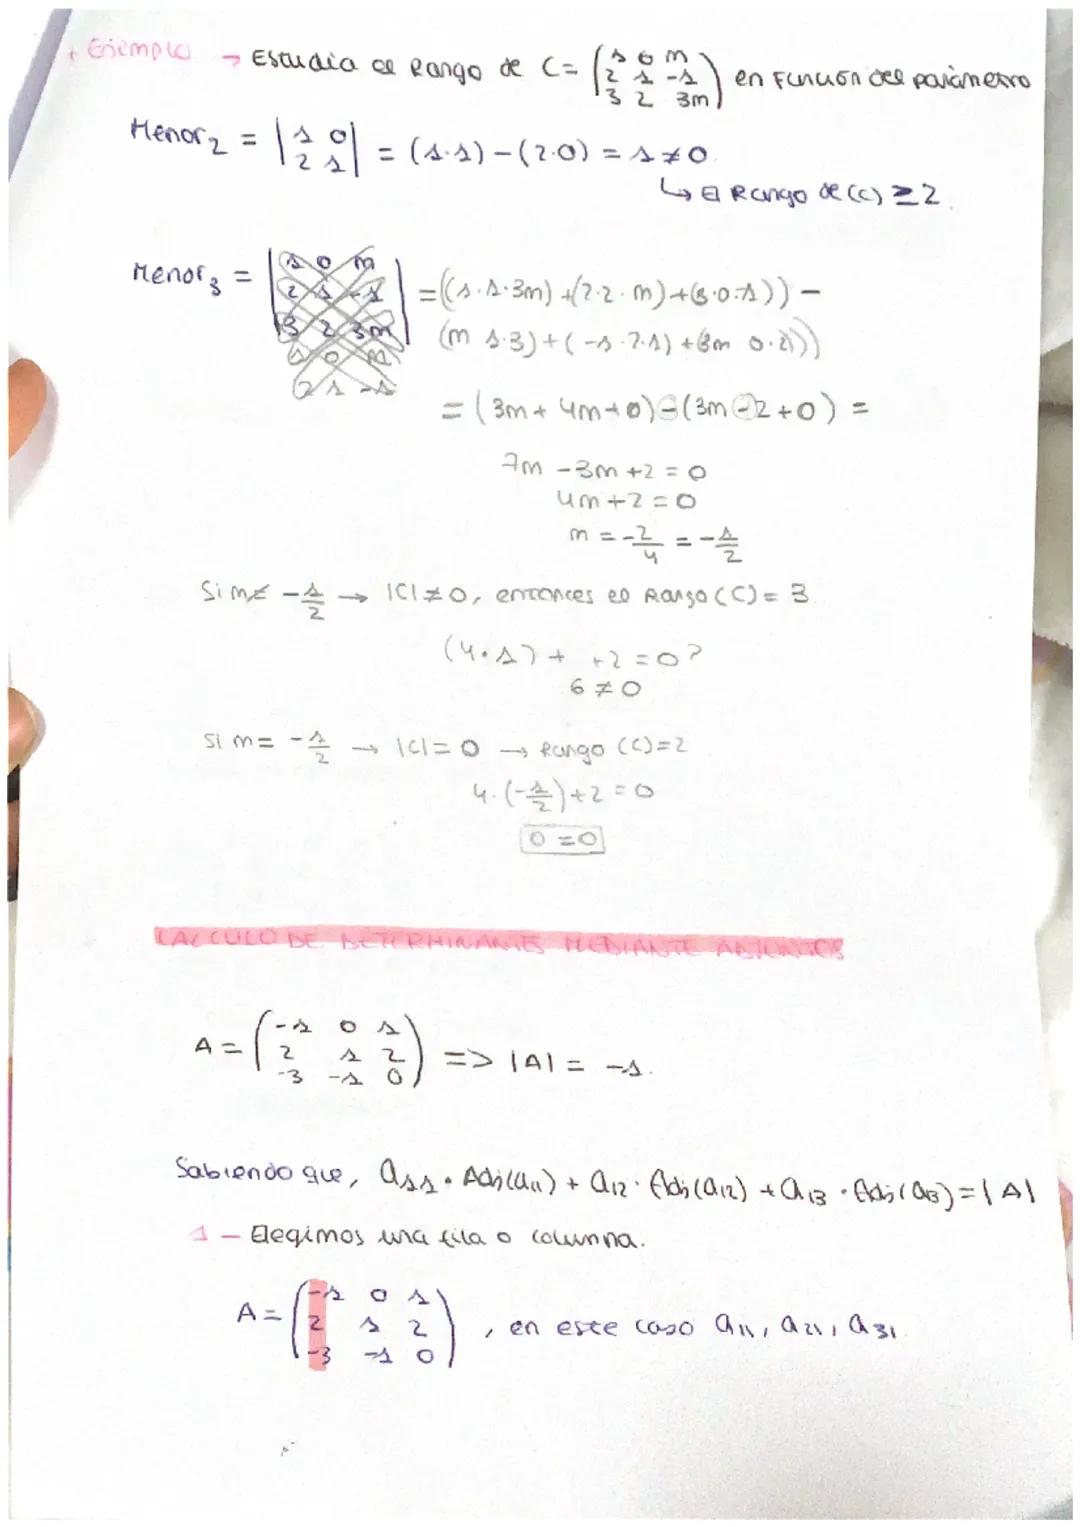 + Ejemplo → Estudia el Rango de C = (1 0 m
2 1 -1
3 2 3m) en función del parámetro
Menor₂ = |1 0
2 1| = (1·1) - (2·0) = 1 ≠ 0
↳ El Rango de (C) ≥ 2.
Menor₃ = |1 0 m
2 1 -1
3 2 3m|
1 0 m
2 1 -1
= ((1·1·3m) + (2·2·m) + (3·0·1)) -
(m 1·3) + (-1·2·1) + (3m 0·2)))
= (3m + 4m + 0) - (3m - 2 + 0) =
7m - 3m + 2 = 0
4m + 2 = 0
m = -2/4 = -1/2
Si m ≠ -1/2 → |C| ≠ 0, entonces el Rango (C) = 3
(4·1) + +2 = 0?
6 ≠ 0
Si m = -1/2 → |C| = 0 → Rango (C) = 2
4·(-1/2) + 2 = 0
0 = 0
CALCULO DE DETERMINANTES MEDIANTE ADJUNTOS
A = (-1 0 1
2 1 2
-3 -1 0) => |A| = -1.
Sabiendo que, a₁₁ · Adj(a₁₁) + a₁₂ · Adj(a₁₂) + a₁₃ · Adj(a₁₃) = |A|
1 - Elegimos una fila o columna.
A = (-1 0 1
2 1 2
-3 -1 0) , en este caso a₁₁, a₂₁, a₃₁.